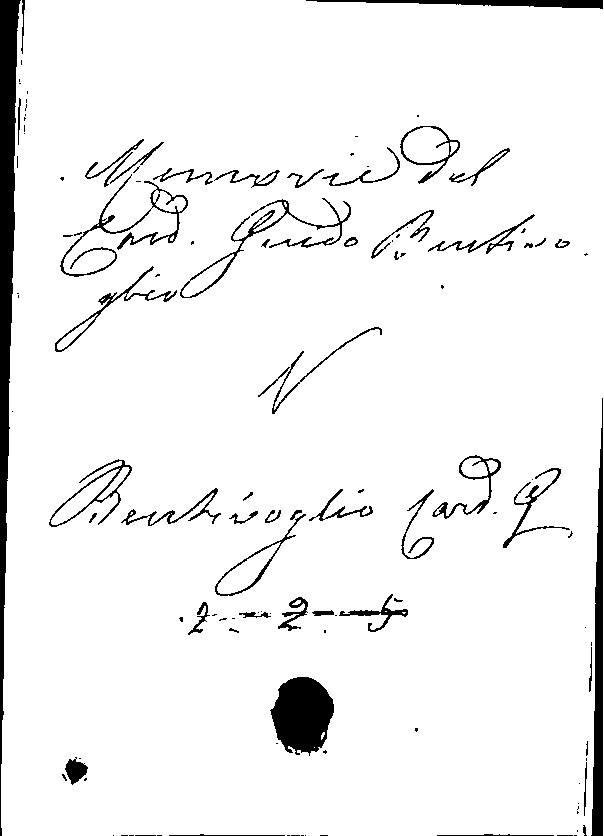 Memorie del
Card. Guido Bentivo
glio
V
Bentivoglio Card. G
2 - 2 - 5